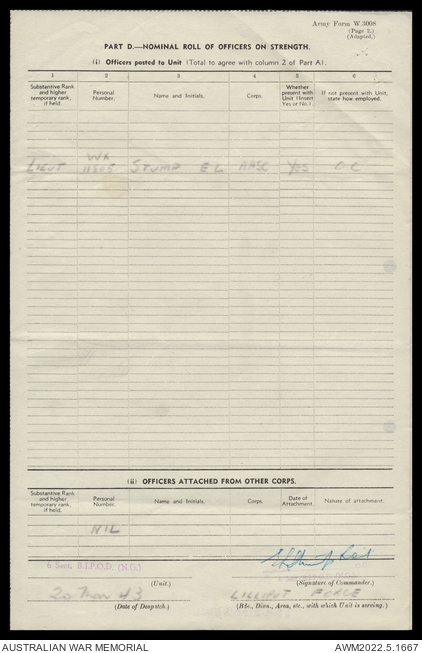 Army Form W.3008
(Page 2.)
(Adapted.)
PART D.—NOMINAL ROLL OF OFFICERS ON STRENGTH.
(i) Officers posted to Unit (Total to agree with column 2 of Part A).
1 2 3 4 5 6
Substantive Rank and higher temporary rank, if held. Personal Number. Name and Initials. Corps. Whether present with Unit (Insert Yes or No.) If not present with Unit, state how employed.
LIEUT WX 11505 STUMP E L AASC YES O C
(ii) OFFICERS ATTACHED FROM OTHER CORPS.
Substantive Rank and higher temporary rank, if held. Personal Number. Name and Initials. Corps. Date of Attachment. Nature of attachment.
NIL
6 Sect. B.I.P.O.D. (N.G.)
(Unit.) (Signature of Commander.)
20 Mar 43 LILLIPUT FORCE
(Date of Despatch.) (Bde., Divn., Area, etc., with which Unit is serving.)
AUSTRALIAN WAR MEMORIAL AWM2022.5.1667